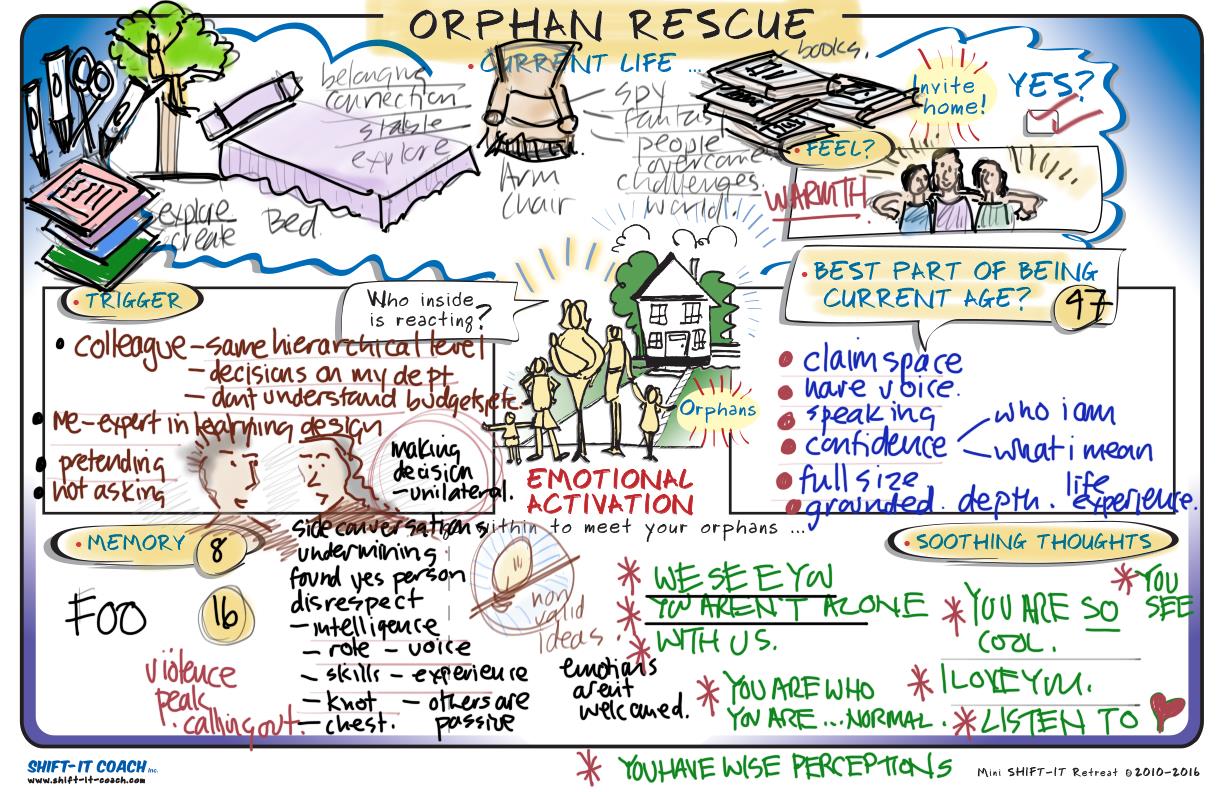 ORPHAN RESCUE
• CURRENT LIFE ...
belonging
connection
stable
explore
explore
create
Bed.
Arm
Chair
spy
people
overcame
challenges
world.
books.
Invite
home!
YES?
• FEEL?
WARMTH
• TRIGGER
Who inside
is reacting?
• colleague – same hierarchical level
– decisions on my dept
– dont understand budgets, etc.
• Me – expert in learning design
• pretending
• not asking
making
decision
– unilateral.
Orphans
EMOTIONAL
ACTIVATION
within to meet your orphans ...
• BEST PART OF BEING
CURRENT AGE?
47
• claim space
• have voice.
• speaking
• confidence
who i am
what i mean
• full size.
• grounded. depth. life
experience.
• MEMORY
8
FOO
16
violence
peaks
. calling out.
side conversations
undermining.
found yes person
disrespect
– intelligence
– role – voice
– skills – experience
– knot – others are
– chest. passive
non
valid
ideas.
emotions
aren't
welcomed.
• SOOTHING THOUGHTS
* WE SEE YOU
* YOU AREN'T ALONE
* WITH US.
* YOU ARE WHO
YOU ARE ... NORMAL.
* YOU
SEE
* YOU ARE SO
COOL.
* I LOVE YOU.
* LISTEN TO
* YOU HAVE WISE PERCEPTIONS
SHIFT-IT COACH inc.
www.shift-it-coach.com
Mini SHIFT-IT Retreat ©2010-2016